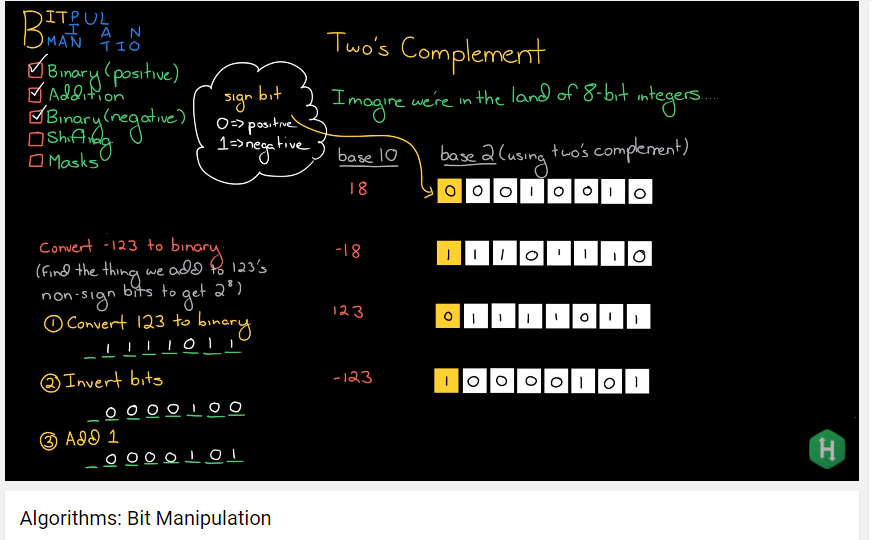 BITPUL
I A N
MAN TIO
Binary (positive)
Addition
Binary (negative)
Shifting
Masks
sign bit
0=> positive
1=> negative
Two's Complement
Imagine we're in the land of 8-bit integers.....
base 10
base 2 (using two's complement)
18
0 0 0 1 0 0 1 0
-18
1 1 1 0 1 1 1 0
123
0 1 1 1 1 0 1 1
-123
1 0 0 0 0 1 0 1
Convert -123 to binary
(Find the thing we add to 123's
non-sign bits to get 2⁸)
① Convert 123 to binary
_ 1 1 1 1 0 1 1
② Invert bits
_ 0 0 0 0 1 0 0
③ Add 1
_ 0 0 0 0 1 0 1
H
Algorithms: Bit Manipulation